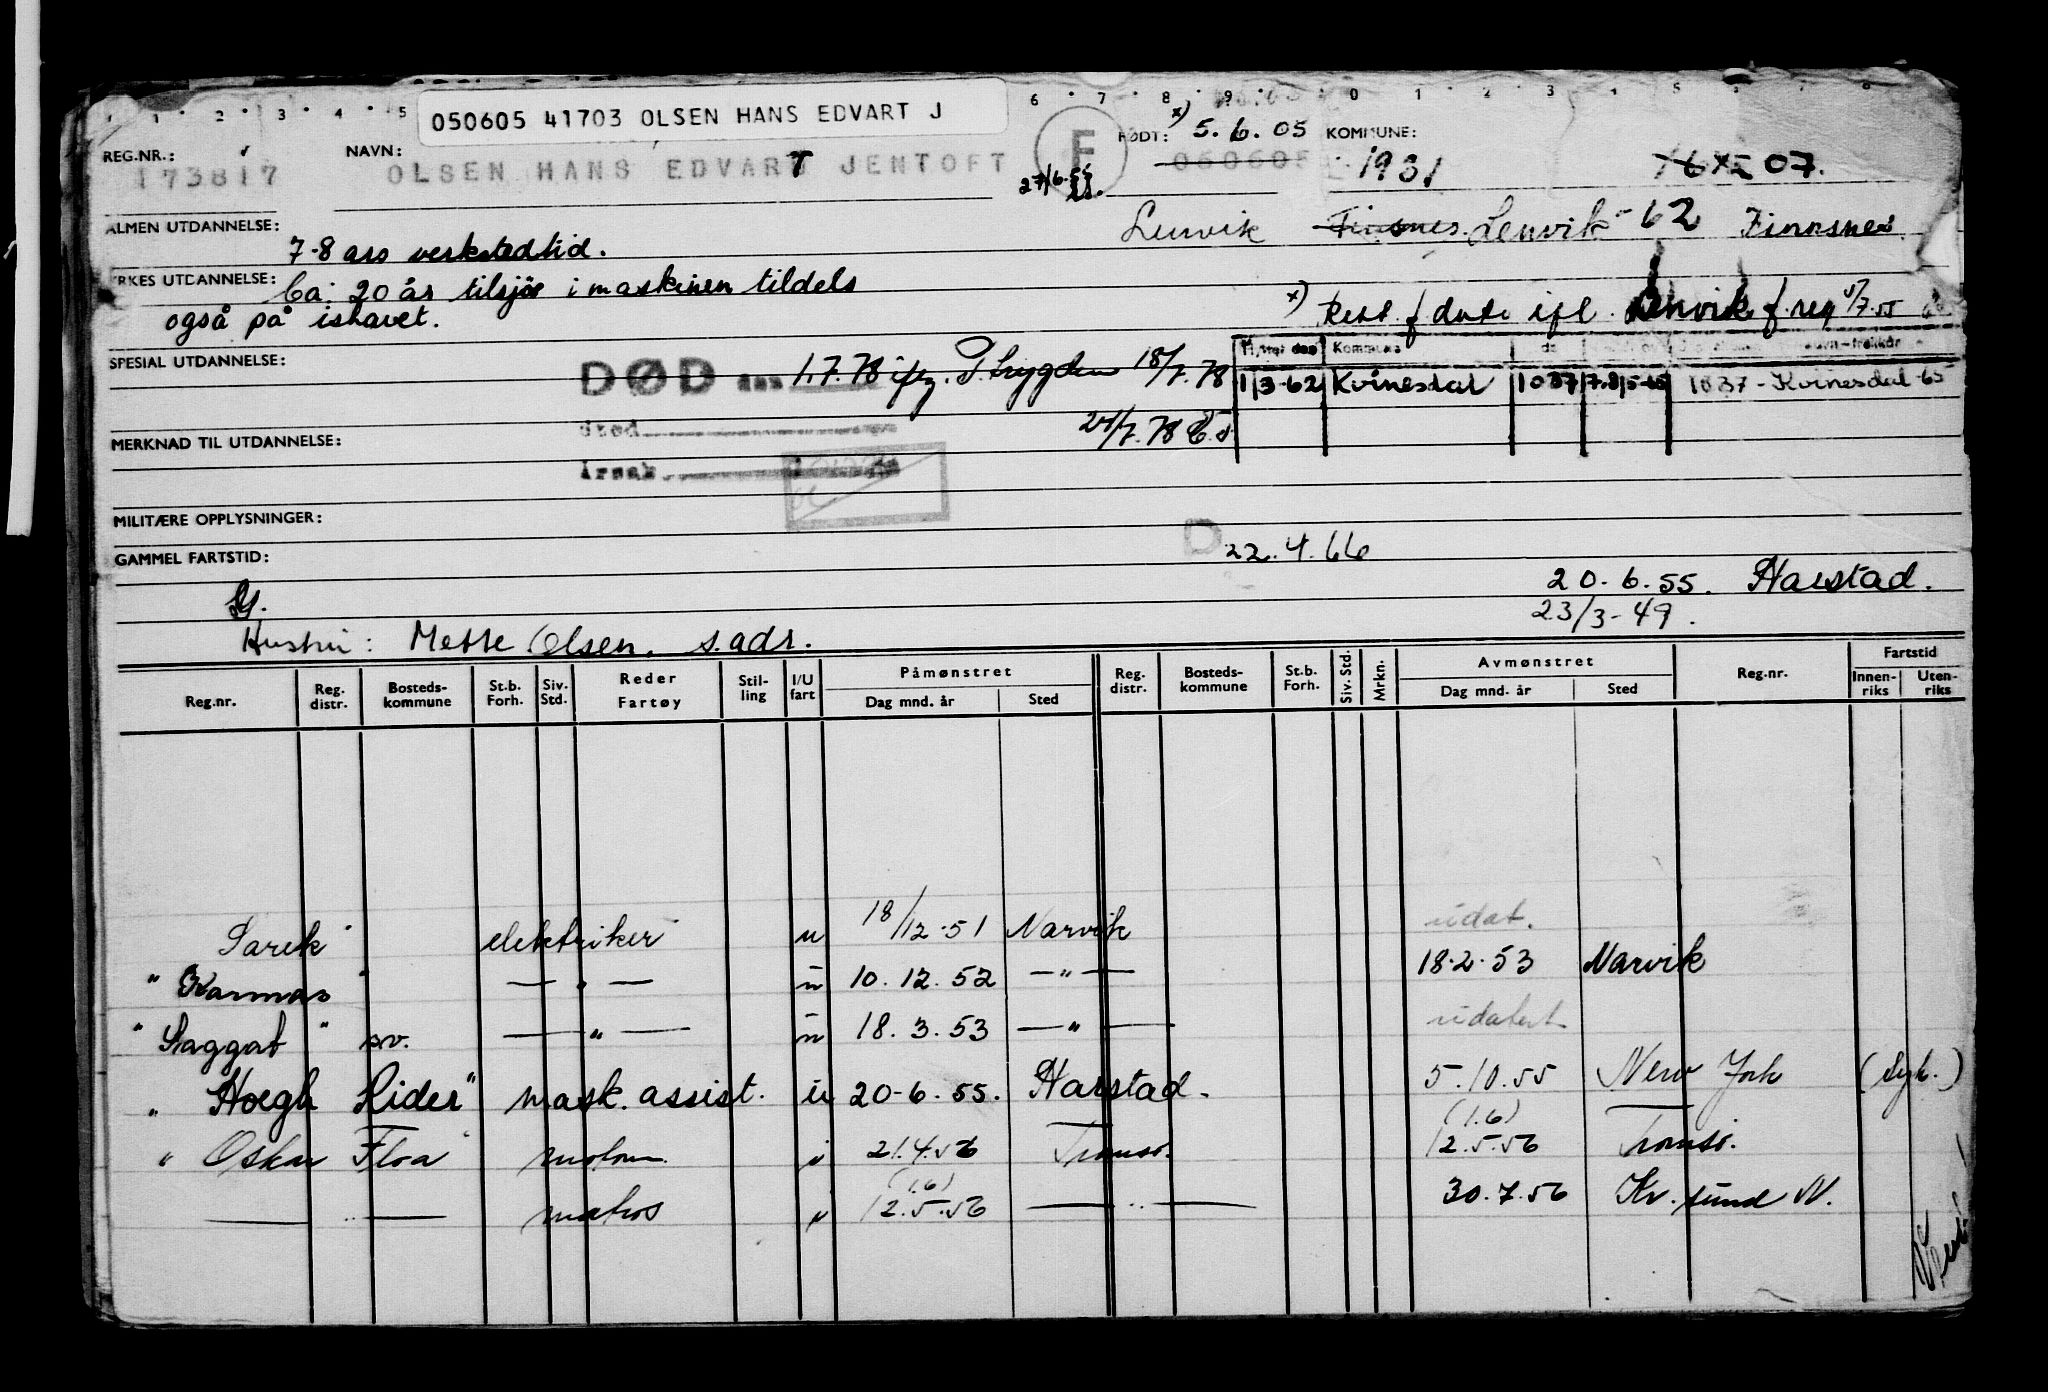 050605 41703 OLSEN HANS EDVART J
REG.NR.: 173817
NAVN: OLSEN HANS EDVART JENTOFT
F
27/6.55
FØDT: x) 5.6.05
050605
KOMMUNE: 1931
07.
Lenvik Finsnes. Lenvik - 62 Finnsnes
ALMEN UTDANNELSE: 7-8 års verkstedtid.
YRKES UTDANNELSE: Ca: 20 år tilsjøs i maskinen tildels
også på ishavet.
x) Rett. f dato ifl. Lenvik f.reg 5/7.55
SPESIAL UTDANNELSE:
DØD den 1.7.78 18/7.78
Sted
24/7.78
Årsak
Kommune
1/3-62 Kvinesdal 1037 1037 - Kvinesdal -65
MERKNAD TIL UTDANNELSE:
MILITÆRE OPPLYSNINGER:
GAMMEL FARTSTID:
D 22.4.66
20.6.55. Harstad.
23/3-49.
Hustru: Mette Olsen. s.adr.
Reg.nr. Reg. distr. Bosteds-kommune St.b. Forh. Siv. Std. Reder Fartøy Stil-ling I/U fart Påmønstret Dag mnd. år Sted Reg. distr. Bosteds-kommune St.b. Forh. Siv. Std. Mrkn. Avmønstret Dag mnd. år Sted Reg.nr. Fartstid Innen-riks Uten-riks
Sarek" elektriker u 18/12.51 Narvik udat.
" Karmas " — " — u 10.12.52 — " — 18.2.53 Narvik
" Saggat " sv. — " — u 18.3.53 — " — udatert
" Hoegh Rider" mask. assist. u 20-6.55. Harstad. 5.10.55 New York (syk.)
" Oskar Floa" motorm. i 21.4.56 Tromsø. (1.6) 12.5.56 Tromsø.
— " — matros i (1.6) 12.5.56 — " — 30.7.56 Kr.sund N.